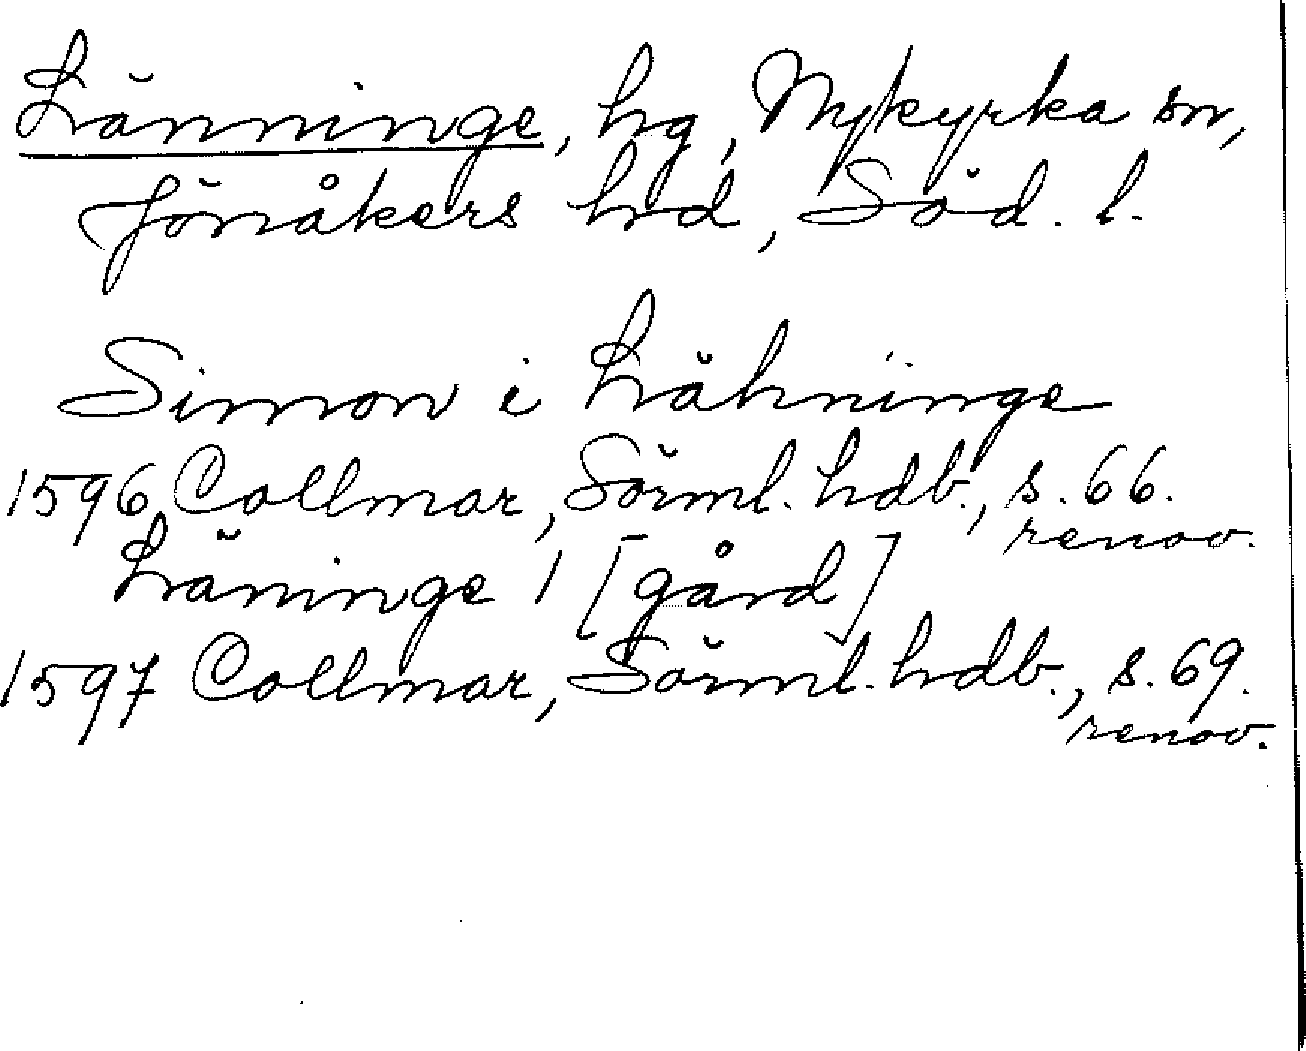 Länninge, hg, Nykyrka sn,
Jönåkers hrd, Söd. l.
Simon i Lähninge
1596 Collmar, Sörml. hdb., s. 66.
renov.
Läninge 1 [gård]
1597 Collmar, Sörml. hdb., s. 69.
renov.